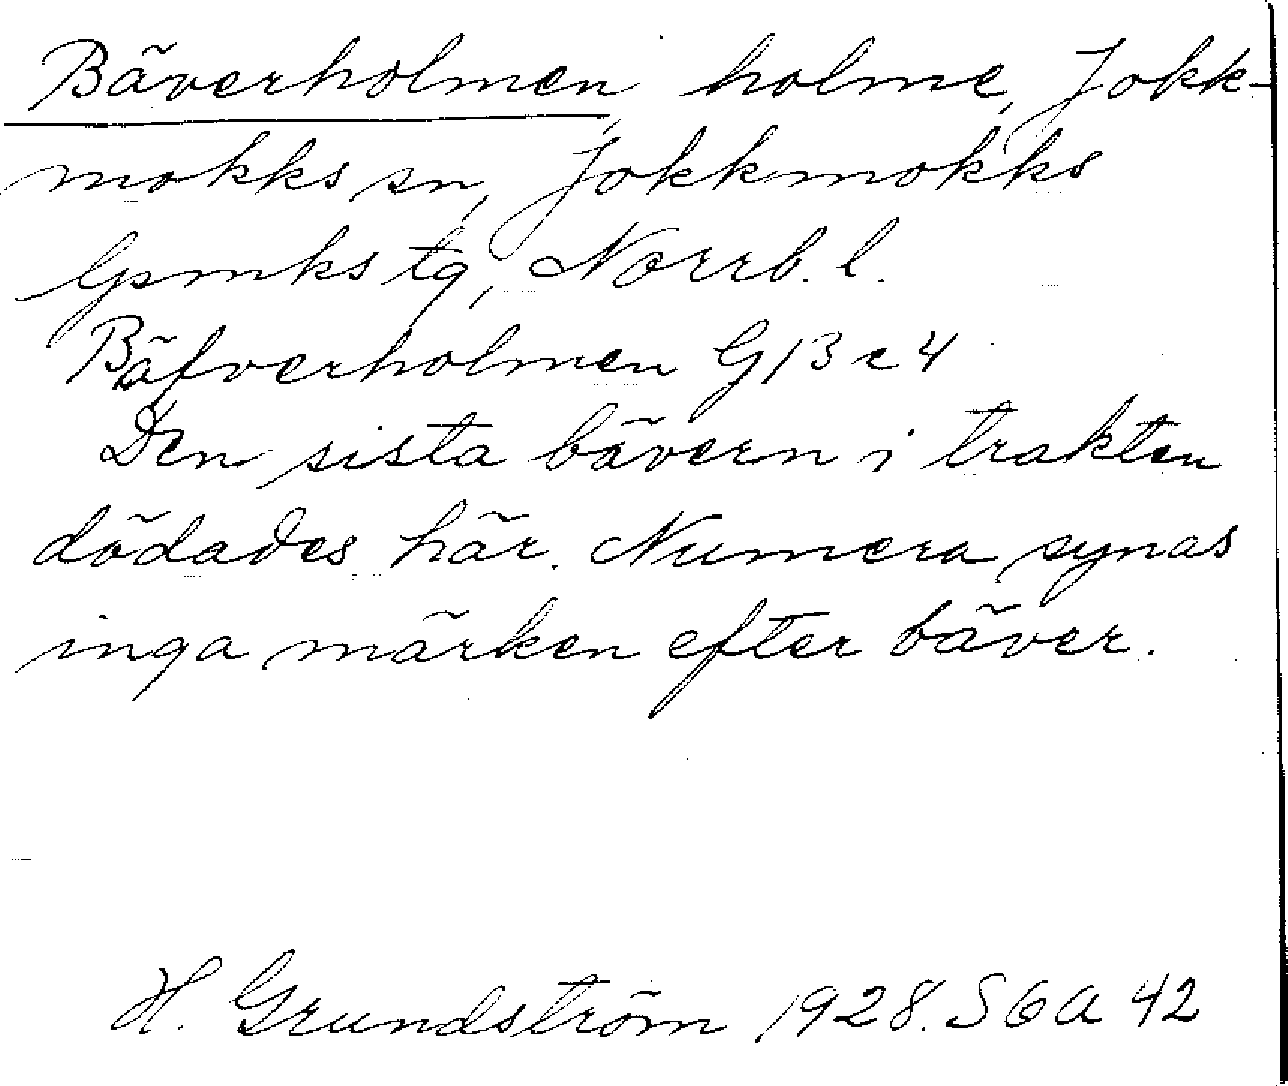 Bäverholmen, holme, Jokk-
mokks sn, Jokkmokks
lpmks tg, Norrb. l.
Bäfverholmen G 13 c 4
Den sista bävern i trakten
dödades här. Numera synas
inga märken efter bäver.
H. Grundström 1928. S 6 a 42